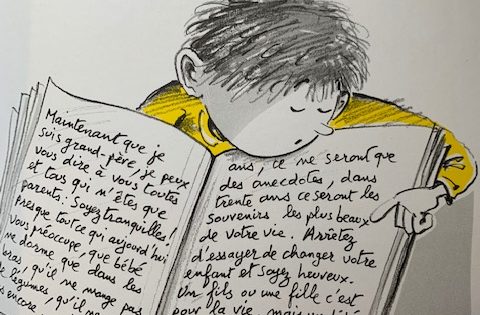 Maintenant que je
suis grand-père, je peux
vous dire à vous toutes
et tous qui n'êtes que
parents : Soyez tranquilles !
Presque tout ce qui aujourd'hui
vous préoccupe, que bébé
ne dorme que dans les
bras, qu'il ne mange pas
de légumes, qu'il n
encore
ans, ce ne seront que
des anecdotes, dans
trente ans ce seront les
souvenirs les plus beaux
de votre vie. Arrêtez
d'essayer de changer votre
enfant et soyez heureux.
Un fils ou une fille c'est
pour la vie, mais un